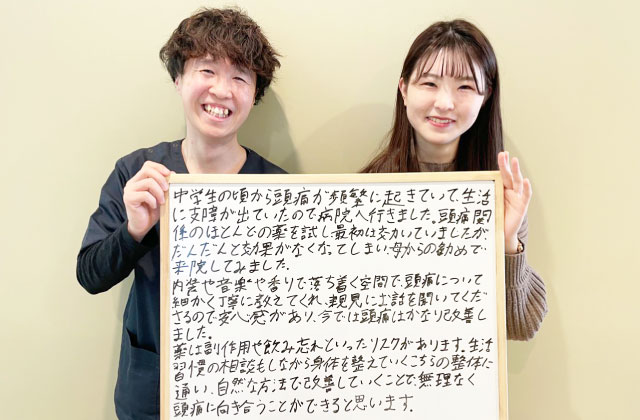 中学生の頃から頭痛が頻繁に起きていて、生活
に支障が出ていたので病院へ行きました。頭痛関
係のほとんどの薬を試し最初は効いていましたが
だんだんと効果がなくなってしまい、母からの勧めで
来院してみました。
内装や音楽や香りで落ち着く空間で、頭痛について
細かく丁寧に教えてくれ、親身にお話を聞いてくだ
さるので安心感があり、今では頭痛はかなり改善し
ました。
薬は副作用や飲み忘れといったリスクがあります。生活
習慣の相談もしながら身体を整えていくこちらの整体に
通い、自然な方法で改善していくことで、無理なく
頭痛に向き合うことができると思います。